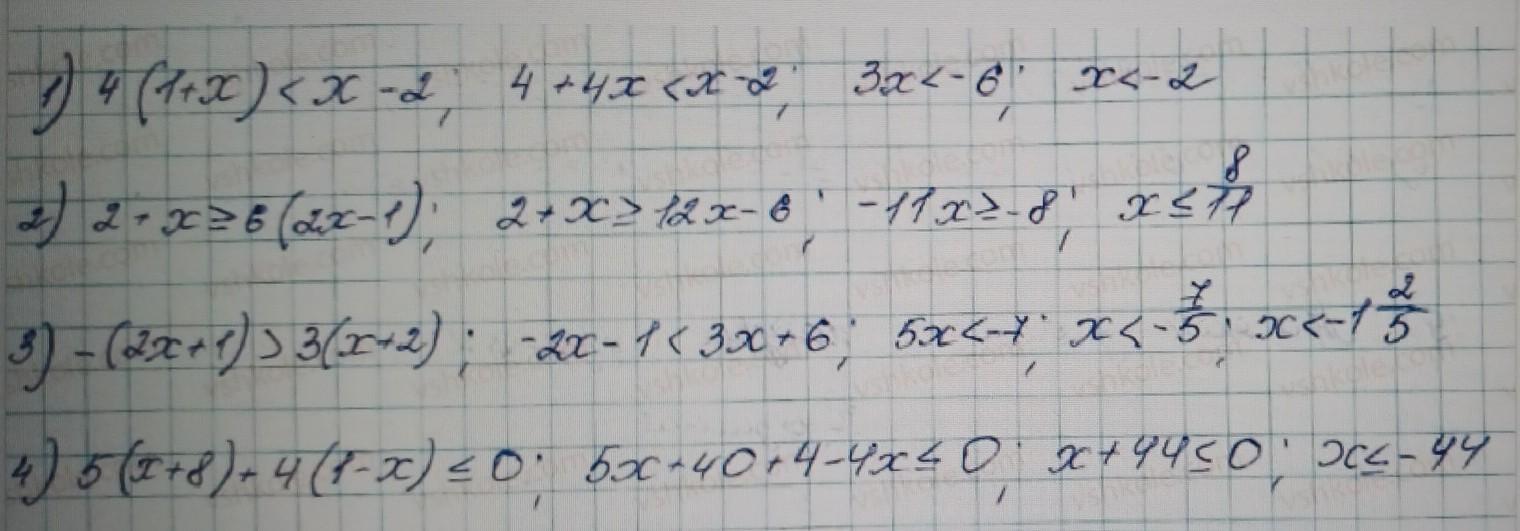 1) 4(1+x) < x - 2; 4 + 4x < x - 2; 3x < -6; x < -2
2) 2 + x ≥ 6(2x - 1); 2 + x ≥ 12x - 6; -11x ≥ -8; x ≤ 8/11
3) -(2x+1) > 3(x+2); -2x - 1 < 3x + 6; 5x < -7; x < -7/5; x < -1 2/5
4) 5(x+8) + 4(1-x) ≤ 0; 5x + 40 + 4 - 4x ≤ 0; x + 44 ≤ 0; x ≤ -44